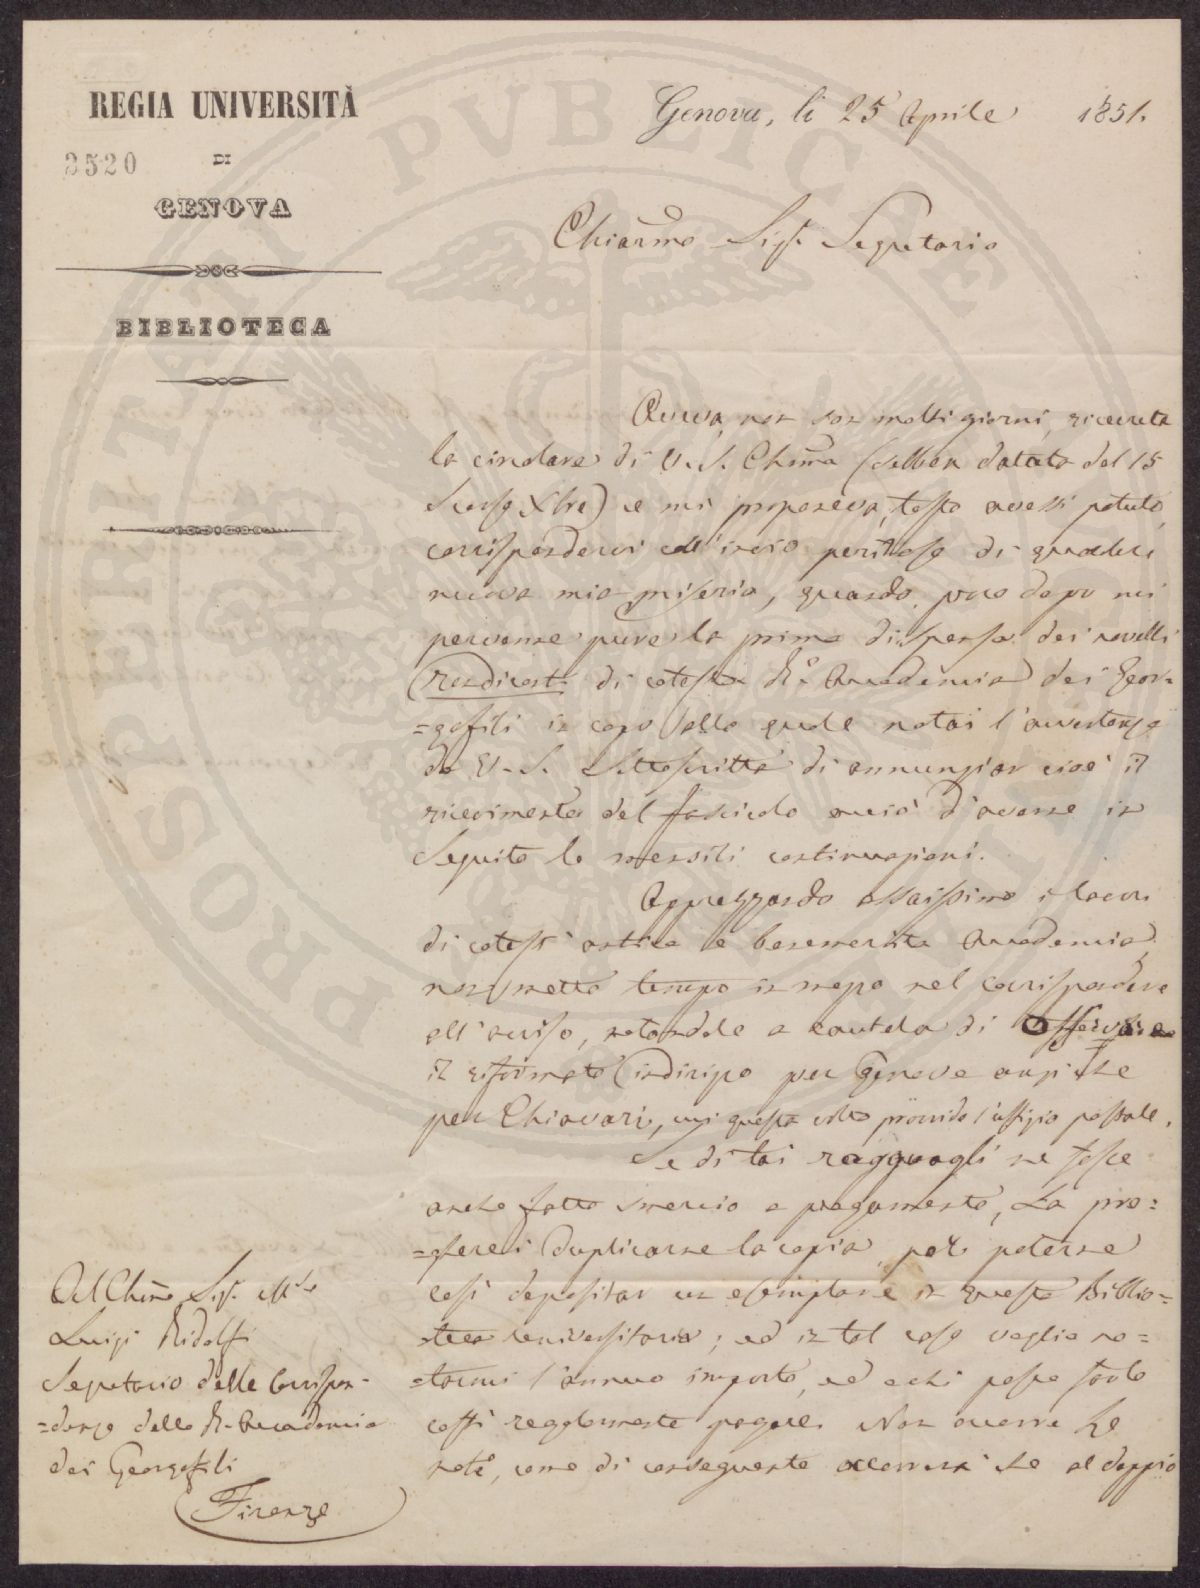 REGIA UNIVERSITÀ
3520
DI
GENOVA
BIBLIOTECA
Genova, li 25 Aprile 1851.
Chiarmo Sigr. Segretario
Aveva, non son molti giorni, ricevuta
la circolare di V. S. Chma (sebben datata del 15
scorso Xbre) e mi proponeva, tosto avessi potuto,
corrispondervi coll'invio di qualche
nuova mia miseria, quando, poco dopo mi
pervenne pure la prima dispensa dei novelli
Rendiconti di cotesta R. Accademia dei Geor=
=gofili in capo alla quale notai l'avvertenza
da V. S. sottoscritta di annunziar cioè il
ricevimento del fascicolo onde d'averne in
seguito le mensili continuazioni.
Apprezzando assaissimo i lavori
di cotest'antica e benemerita Accademia,
non metto tempo in mezzo nel corrispondere
all'avviso, notandole a cautela di
il riformato indirizzo per Genova anziche
per Chiavari, cui questa volta provvide l'uffizio postale.
Se di tai ragguagli ne fosse
anche fatto smercio a pagamento, La pre=
=gherei duplicarne la copia, per poterne
così depositar un esemplare in questa Biblio=
=teca universitaria; ed in tal caso voglia no=
=tarmi l'annuo importo, ed a chi possa farlo
costì regolarmente pagare. Non occorre che
noti, come di conseguente occorrerà che al doppio
Al Chmo Sigr. Mse
Luigi Ridolfi
Segretario delle Corrispon=
=denze della R. Accademia
dei Georgofili
Firenze